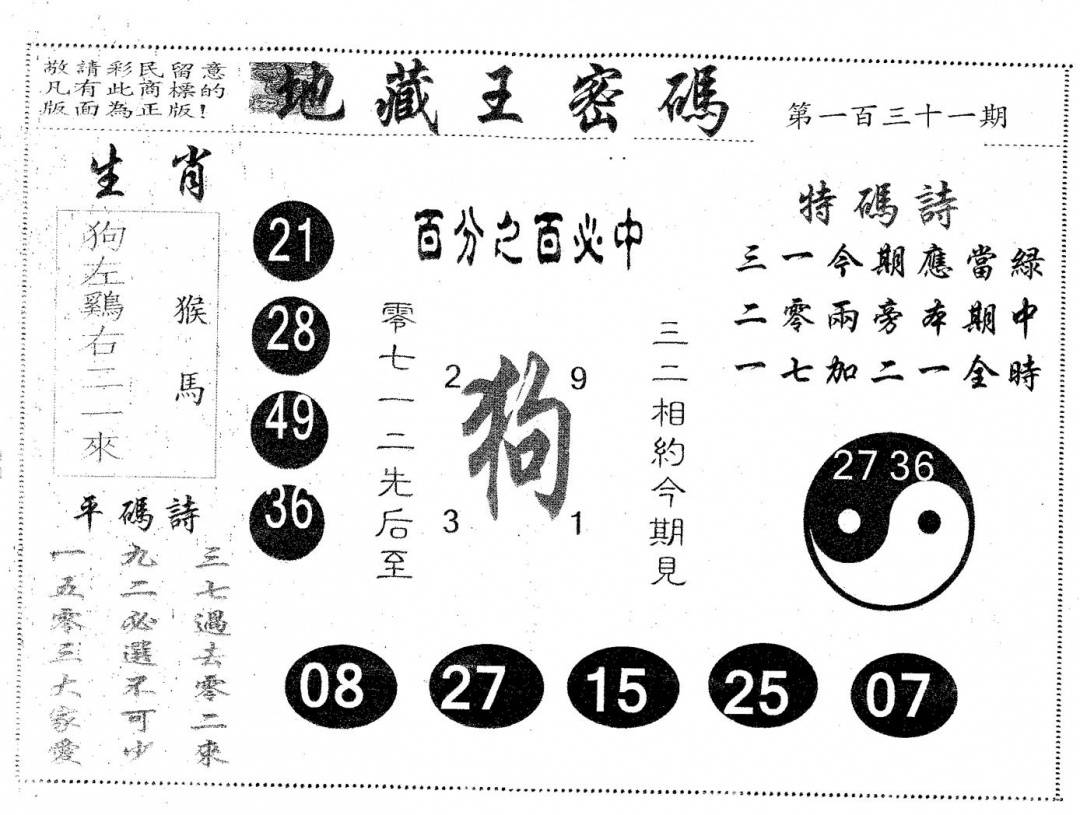 敬請彩民留意
凡有此商標的
版面為正版!
地藏王密碼
第一百三十一期
生肖
狗左鷄右二一來
猴馬
21
28
49
36
百分之百必中
零七一二先后至
2 9
狗
3 1
三二相約今期見
特碼詩
三一今期應當綠
二零兩旁本期中
一七加二一全時
27 36
平碼詩
三七過去零二來
九二必選不可少
一五零三大家愛
08 27 15 25 07